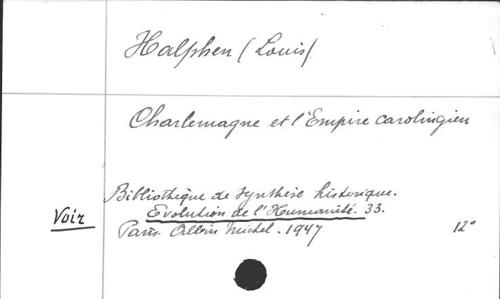 Halphen (Louis)
Charlemagne et l'Empire carolingien
Bibliothèque de Synthèse historique.
Voir Evolution de l'Humanité. 33.
Paris Albin Michel. 1947 12°